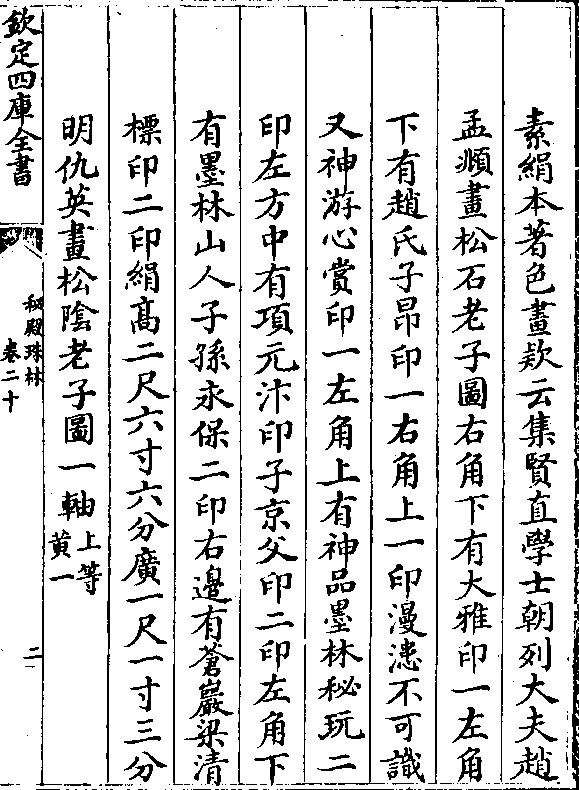 素絹本著色畫欵云集賢直學士朝列大夫趙
孟頫畫松石老子圖右角下有大雅印一左角
下有趙氏子昂印一右角上一印漫漶不可識
又神游心賞印一左角上有神品墨林秘玩二
印左方中有項元汴印子京父印二印左角下
有墨林山人子孫永保二印右邊有蒼巖梁清
標印二印絹髙二尺六寸六分廣一尺一寸三分
明仇英畫松陰老子圖一軸上等
黄一
欽定四庫全書
秘殿珠林
卷二十
二